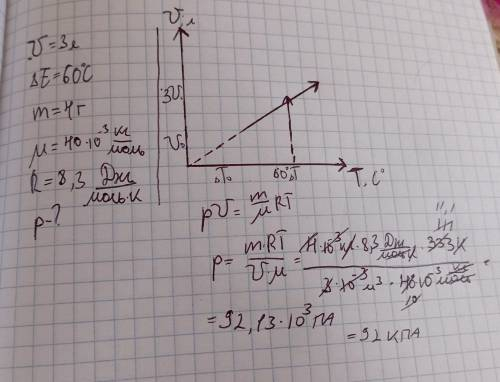 V=3л
ΔE=60°C
m=4г
μ=40·10⁻³ кг/моль
R=8,3 Дж/моль·К
p-?
V, л
3V₀
V₀
ΔT₀ 60° ΔT T, C°
pV = m/μ RT
p = m·RT/V·μ = 4·10⁻³ кг·8,3 Дж/моль·К·333К / 3·10⁻³ м³·40·10⁻³ кг/моль =
11,1
111
10
= 92,13·10³ ПА
= 92 КПА